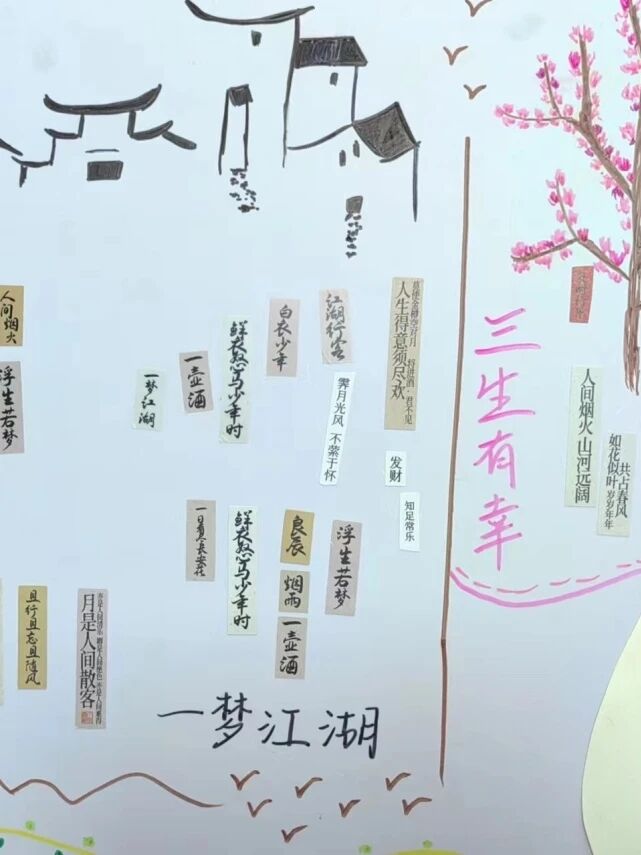 人间烟火
浮生若梦
一梦江湖
一壶酒
鲜衣怒马少年时
白衣少年
江湖行客
霁月光风 不萦于怀
莫使金樽空对月
人生得意须尽欢
将进酒·君不见
发财
知足常乐
一日看尽长安花
鲜衣怒马少年时
良辰
烟雨
一壶酒
浮生若梦
且行且忘且随风
月是人间散客
一梦江湖
三生有幸
人间烟火 山河远阔
共占春风
如花似叶 岁岁年年